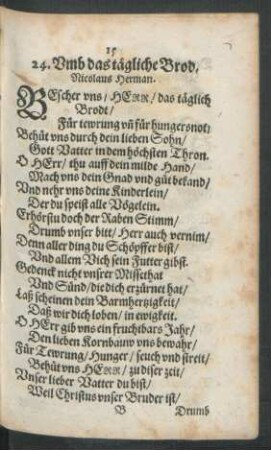 15
24. Vmb das tägliche Brod,
Nicolaus Herman.
BEscher vns / HERR / das täglich
Brodt /
Für tewrung vñ für hungersnot:
Behüt vns durch dein lieben Sohn /
Gott Vatter in dem höchsten Thron.
O HErr / thu auff dein milde Hand /
Mach vns dein Gnad vnd güt bekand /
Vnd nehr vns deine Kinderlein /
Der du speist alle Vögelein.
Erhörstu doch der Raben Stimm /
Drumb vnser bitt / Herr auch vernim /
Denn aller ding du Schöpffer bist /
Vnd allem Vieh sein Futter gibst.
Gedenck nicht vnsrer Missethat
Vnd Sünd / die dich erzürnet hat /
Laß scheinen dein Barmhertzigkeit /
Daß wir dich loben / in ewigkeit.
O HErr gib vns ein fruchtbars Jahr /
Den lieben Kornbawn vns bewahr /
Für Tewrung / Hunger / seuch vnd streit /
Behüt vns HERR / zu diser zeit /
Vnser lieber Vatter du bist /
Weil Christus vnser Bruder ist /
B Drumb